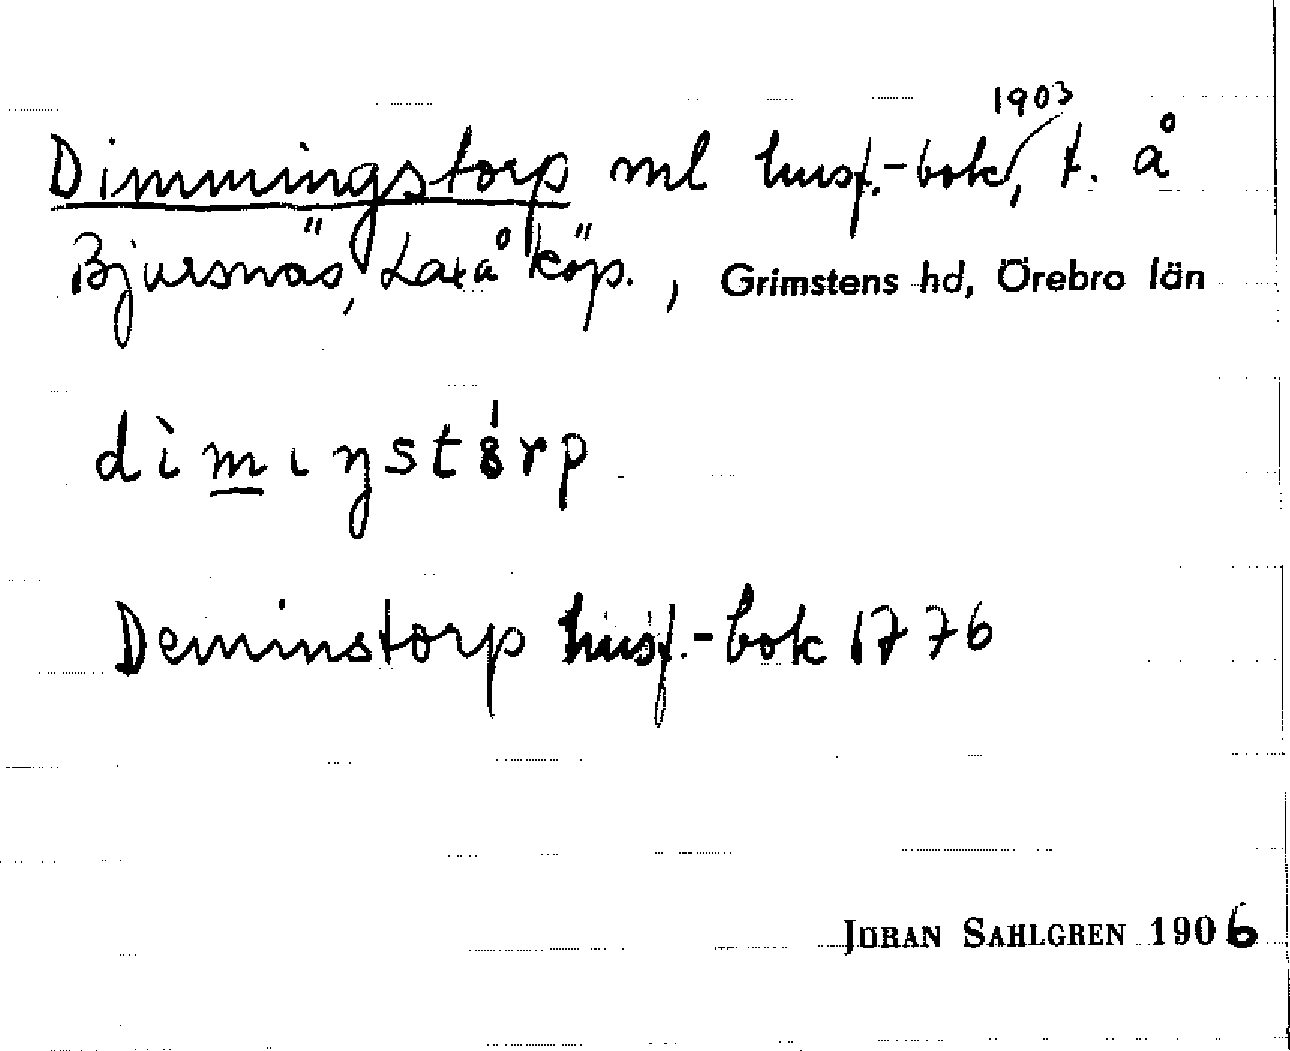 Dimmingstorp ml husf.-bok 1903, t. å
Bjursnäs, Laxå köp., Grimstens hd, Örebro län
dìmıŋstórp
Deminstorp husf.-bok 1776
JÖRAN SAHLGREN 1906